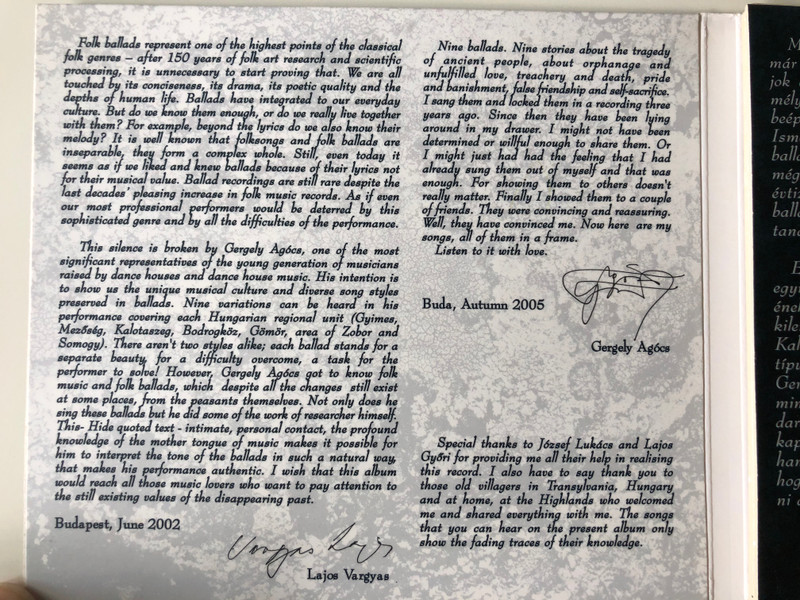 Folk ballads represent one of the highest points of the classical
folk genres – after 150 years of folk art research and scientific
processing, it is unnecessary to start proving that. We are all
touched by its conciseness, its drama, its poetic quality and the
depths of human life. Ballads have integrated to our everyday
culture. But do we know them enough, or do we really live together
with them? For example, beyond the lyrics do we also know their
melody? It is well known that folksongs and folk ballads are
inseparable, they form a complex whole. Still, even today it
seems as if we liked and knew ballads because of their lyrics not
for their musical value. Ballad recordings are still rare despite the
last decades' pleasing increase in folk music records. As if even
our most professional performers would be deterred by this
sophisticated genre and by all the difficulties of the performance.
This silence is broken by Gergely Agócs, one of the most
significant representatives of the young generation of musicians
raised by dance houses and dance house music. His intention is
to show us the unique musical culture and diverse song styles
preserved in ballads. Nine variations can be heard in his
performance covering each Hungarian regional unit (Gyimes,
Mezőség, Kalotaszeg, Bodrogköz, Gömör, area of Zobor and
Somogy). There aren't two styles alike; each ballad stands for a
separate beauty, for a difficulty overcome, a task for the
performer to solve! However, Gergely Agócs got to know folk
music and folk ballads, which despite all the changes still exist
at some places, from the peasants themselves. Not only does he
sing these ballads but he did some of the work of researcher himself.
This- Hide quoted text - intimate, personal contact, the profound
knowledge of the mother tongue of music makes it possible for
him to interpret the tone of the ballads in such a natural way,
that makes his performance authentic. I wish that this album
would reach all those music lovers who want to pay attention to
the still existing values of the disappearing past.
Budapest, June 2002
Vargyas Lajos
Lajos Vargyas
Nine ballads. Nine stories about the tragedy
of ancient people, about orphanage and
unfulfilled love, treachery and death, pride
and banishment, false friendship and self-sacrifice.
I sang them and locked them in a recording three
years ago. Since then they have been lying
around in my drawer. I might not have been
determined or willful enough to share them. Or
I might just had had the feeling that I had
already sung them out of myself and that was
enough. For showing them to others doesn't
really matter. Finally I showed them to a couple
of friends. They were convincing and reassuring.
Well, they have convinced me. Now here are my
songs, all of them in a frame.
Listen to it with love.
Buda, Autumn 2005
Gergely Agócs
Special thanks to József Lukács and Lajos
Győri for providing me all their help in realising
this record. I also have to say thank you to
those old villagers in Transylvania, Hungary
and at home, at the Highlands who welcomed
me and shared everything with me. The songs
that you can hear on the present album only
show the fading traces of their knowledge.
M
már
jok
mély
beép
Ism
balla
még
évti
balla
tand
E
egy
éne
kile
Kal
típu
Ger
min
dar
kap
han
hog
ni